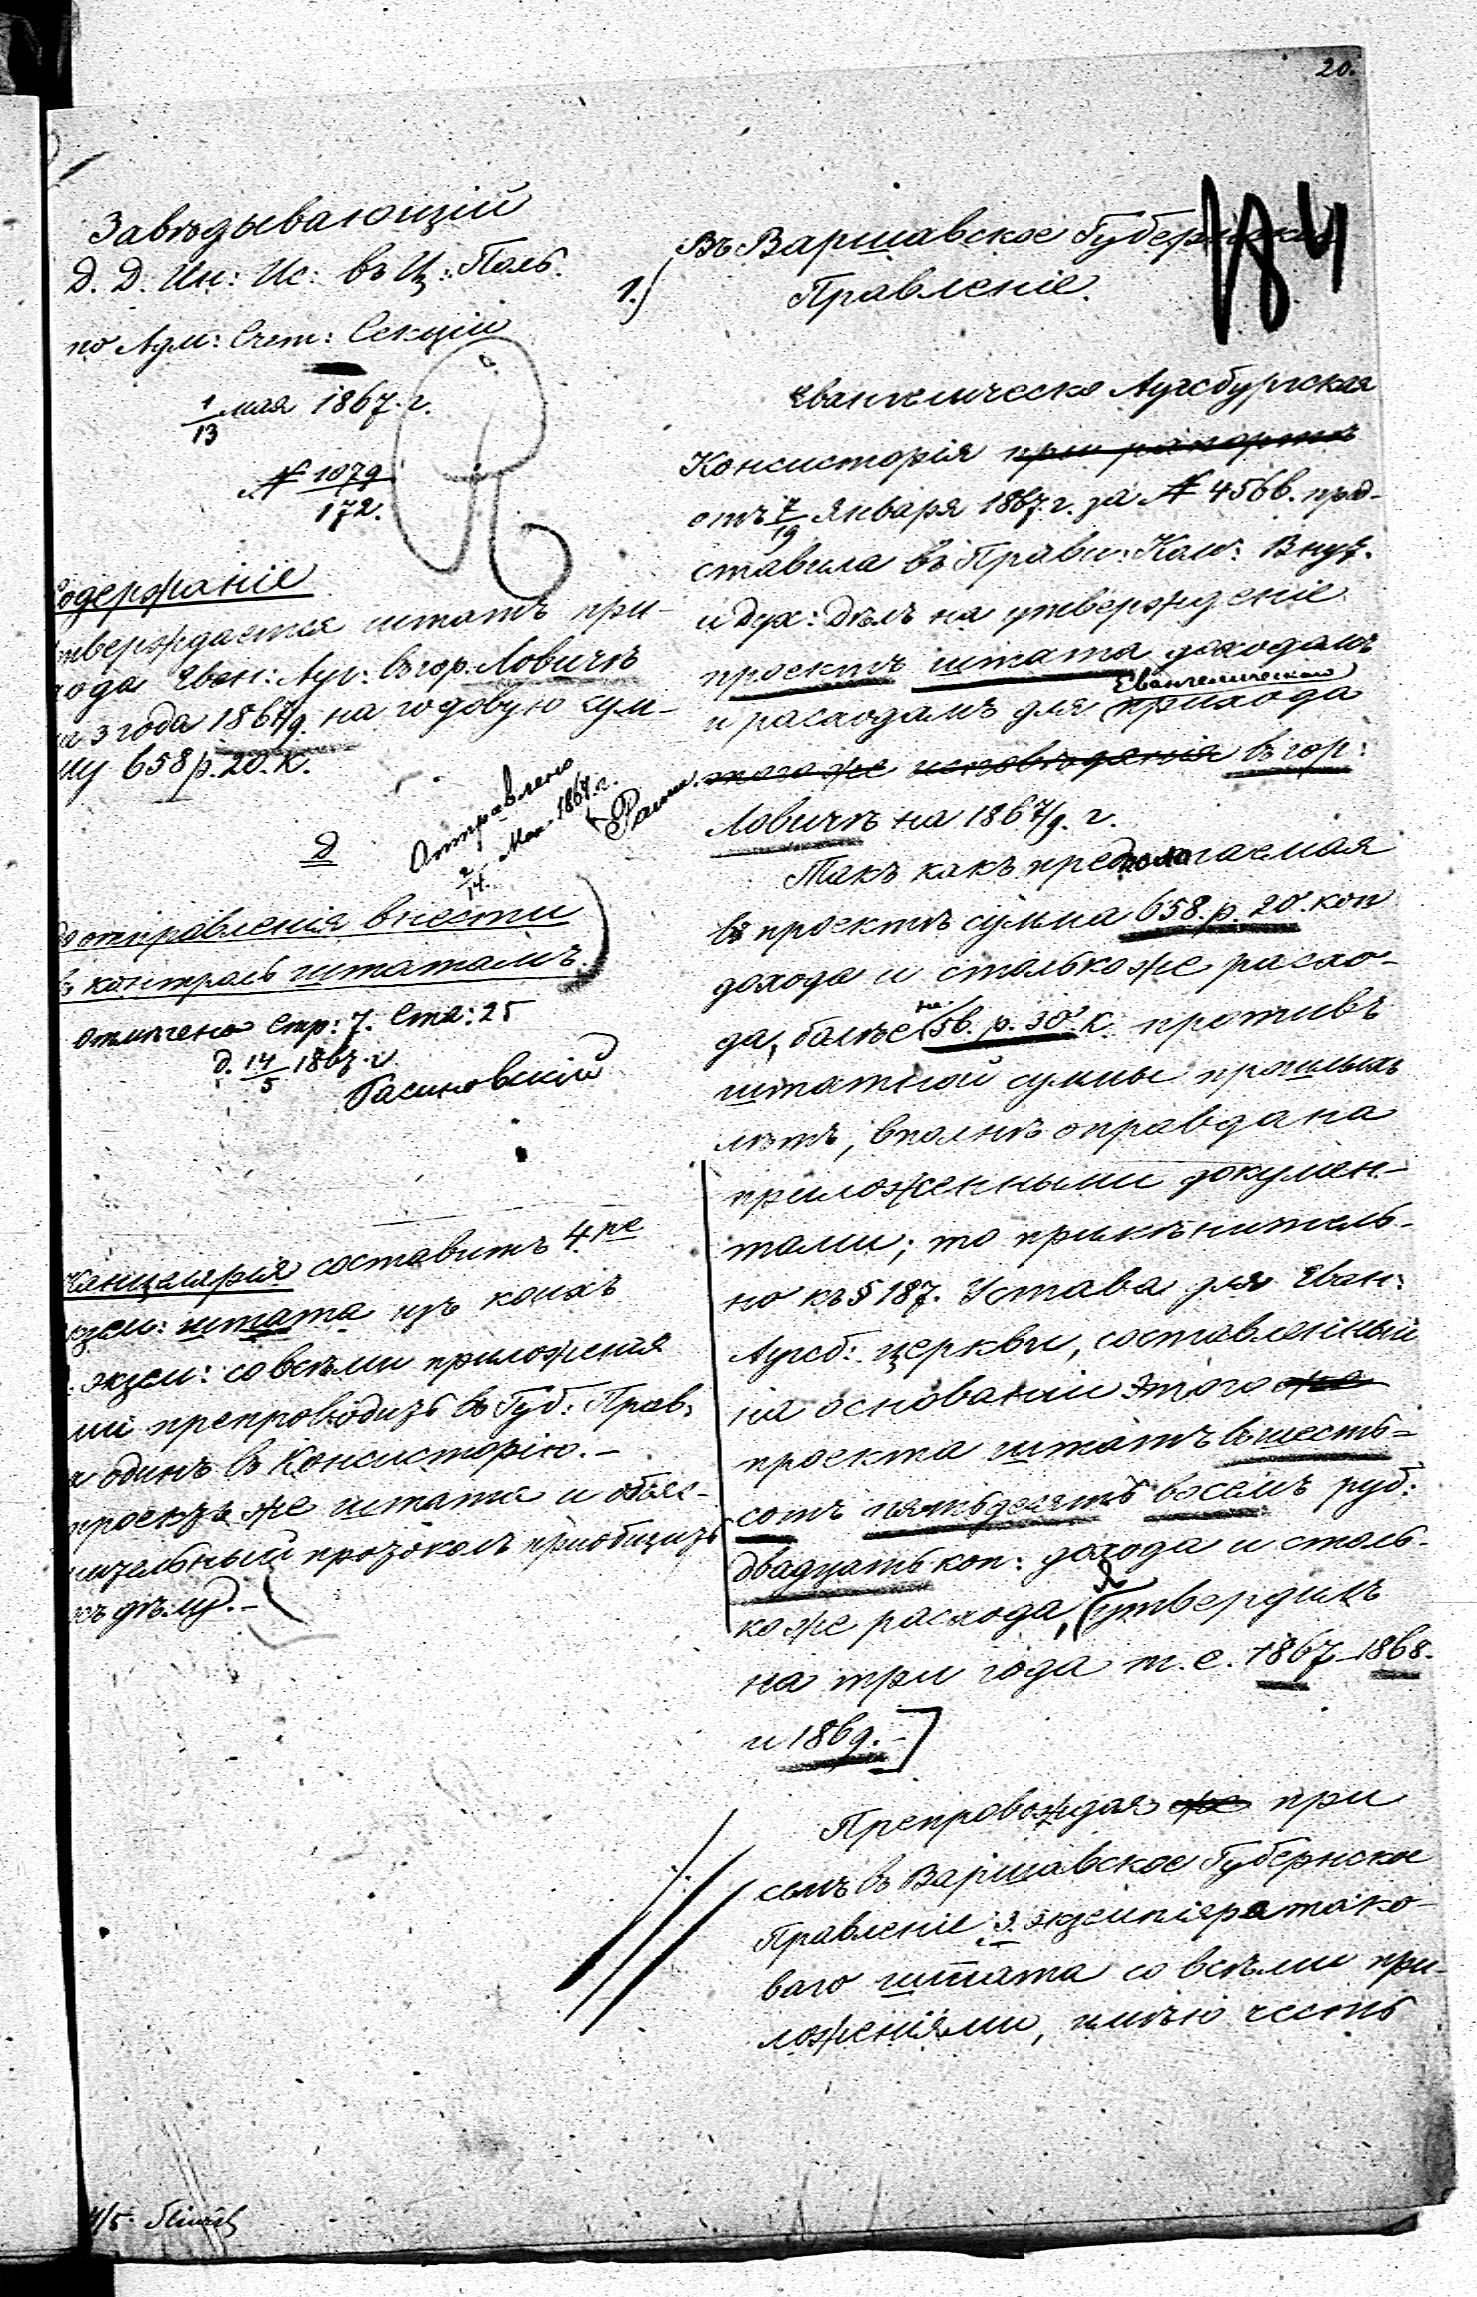 20.
184
Завѣдывающій
Д. Д. Ин: Ис: въ Ц: Поль.
по Адм: Счет: Секціи
1/13 мая 1867 г.
№ 1079/172.
Содержаніе
утверждается штатъ при-
хода Еван: Ауг: въ гор. Ловичѣ
на 3 года 1867/9. на годовую сум-
му 658 р. 20. к.
Отправлено
2/14 Мая 1867 г.
Д
До отправленія внести
въ контроль штатамъ.
Отмѣчено Стр: 7. Ста: 25
д. 14/5 1867 г.
Канцелярія составитъ 4ре
экзем: штата изъ коихъ
3. экзем: со всѣми приложенія
ми препроводить въ Губ: Прав.
и одинъ въ Консисторію. –
проектъ же штата и объяс-
нительный протоколъ пріобщить
къ дѣлу. –
1.) Въ Варшавское Губернское
Правленіе.
Евангелическо Аугсбургская
Консисторія при рапортѣ
отъ 7/19 Января 1867 г. за № 4566. пред-
ставила въ Прави: Ком: Внут.
и Дух: Дѣлъ на утвержденіе
проектъ штата доходамъ
и расходамъ для Евангелическаго прихода
того же исповѣданія въ гор:
Ловичѣ на 1867/9. г.
Такъ какъ предполагаемая
въ проектѣ сумма 658. р. 20. коп
дохода и столько же расхо-
да, болѣе на 56. р. 30 к. противъ
штатной суммы прошлыхъ
лѣтъ, вполнѣ оправдана
приложенными докумен-
тами; то примѣнитель-
но къ § 187. Устава для Еван:
Аугсб: церкви, составленный
на основаніи этого же
проекта штатъ въ шесть-
сотъ пятьдесятъ восемь руб:
двадцать коп: дохода и столь-
ко же расхода, Я утвердилъ
на три года т. е. 1867 1868.
и 1869. –
Препровождая же при
семъ въ Варшавское Губернское
Правленіе 3. экземпляра тако-
ваго штата со всѣми при-
ложеніями, имѣю честь